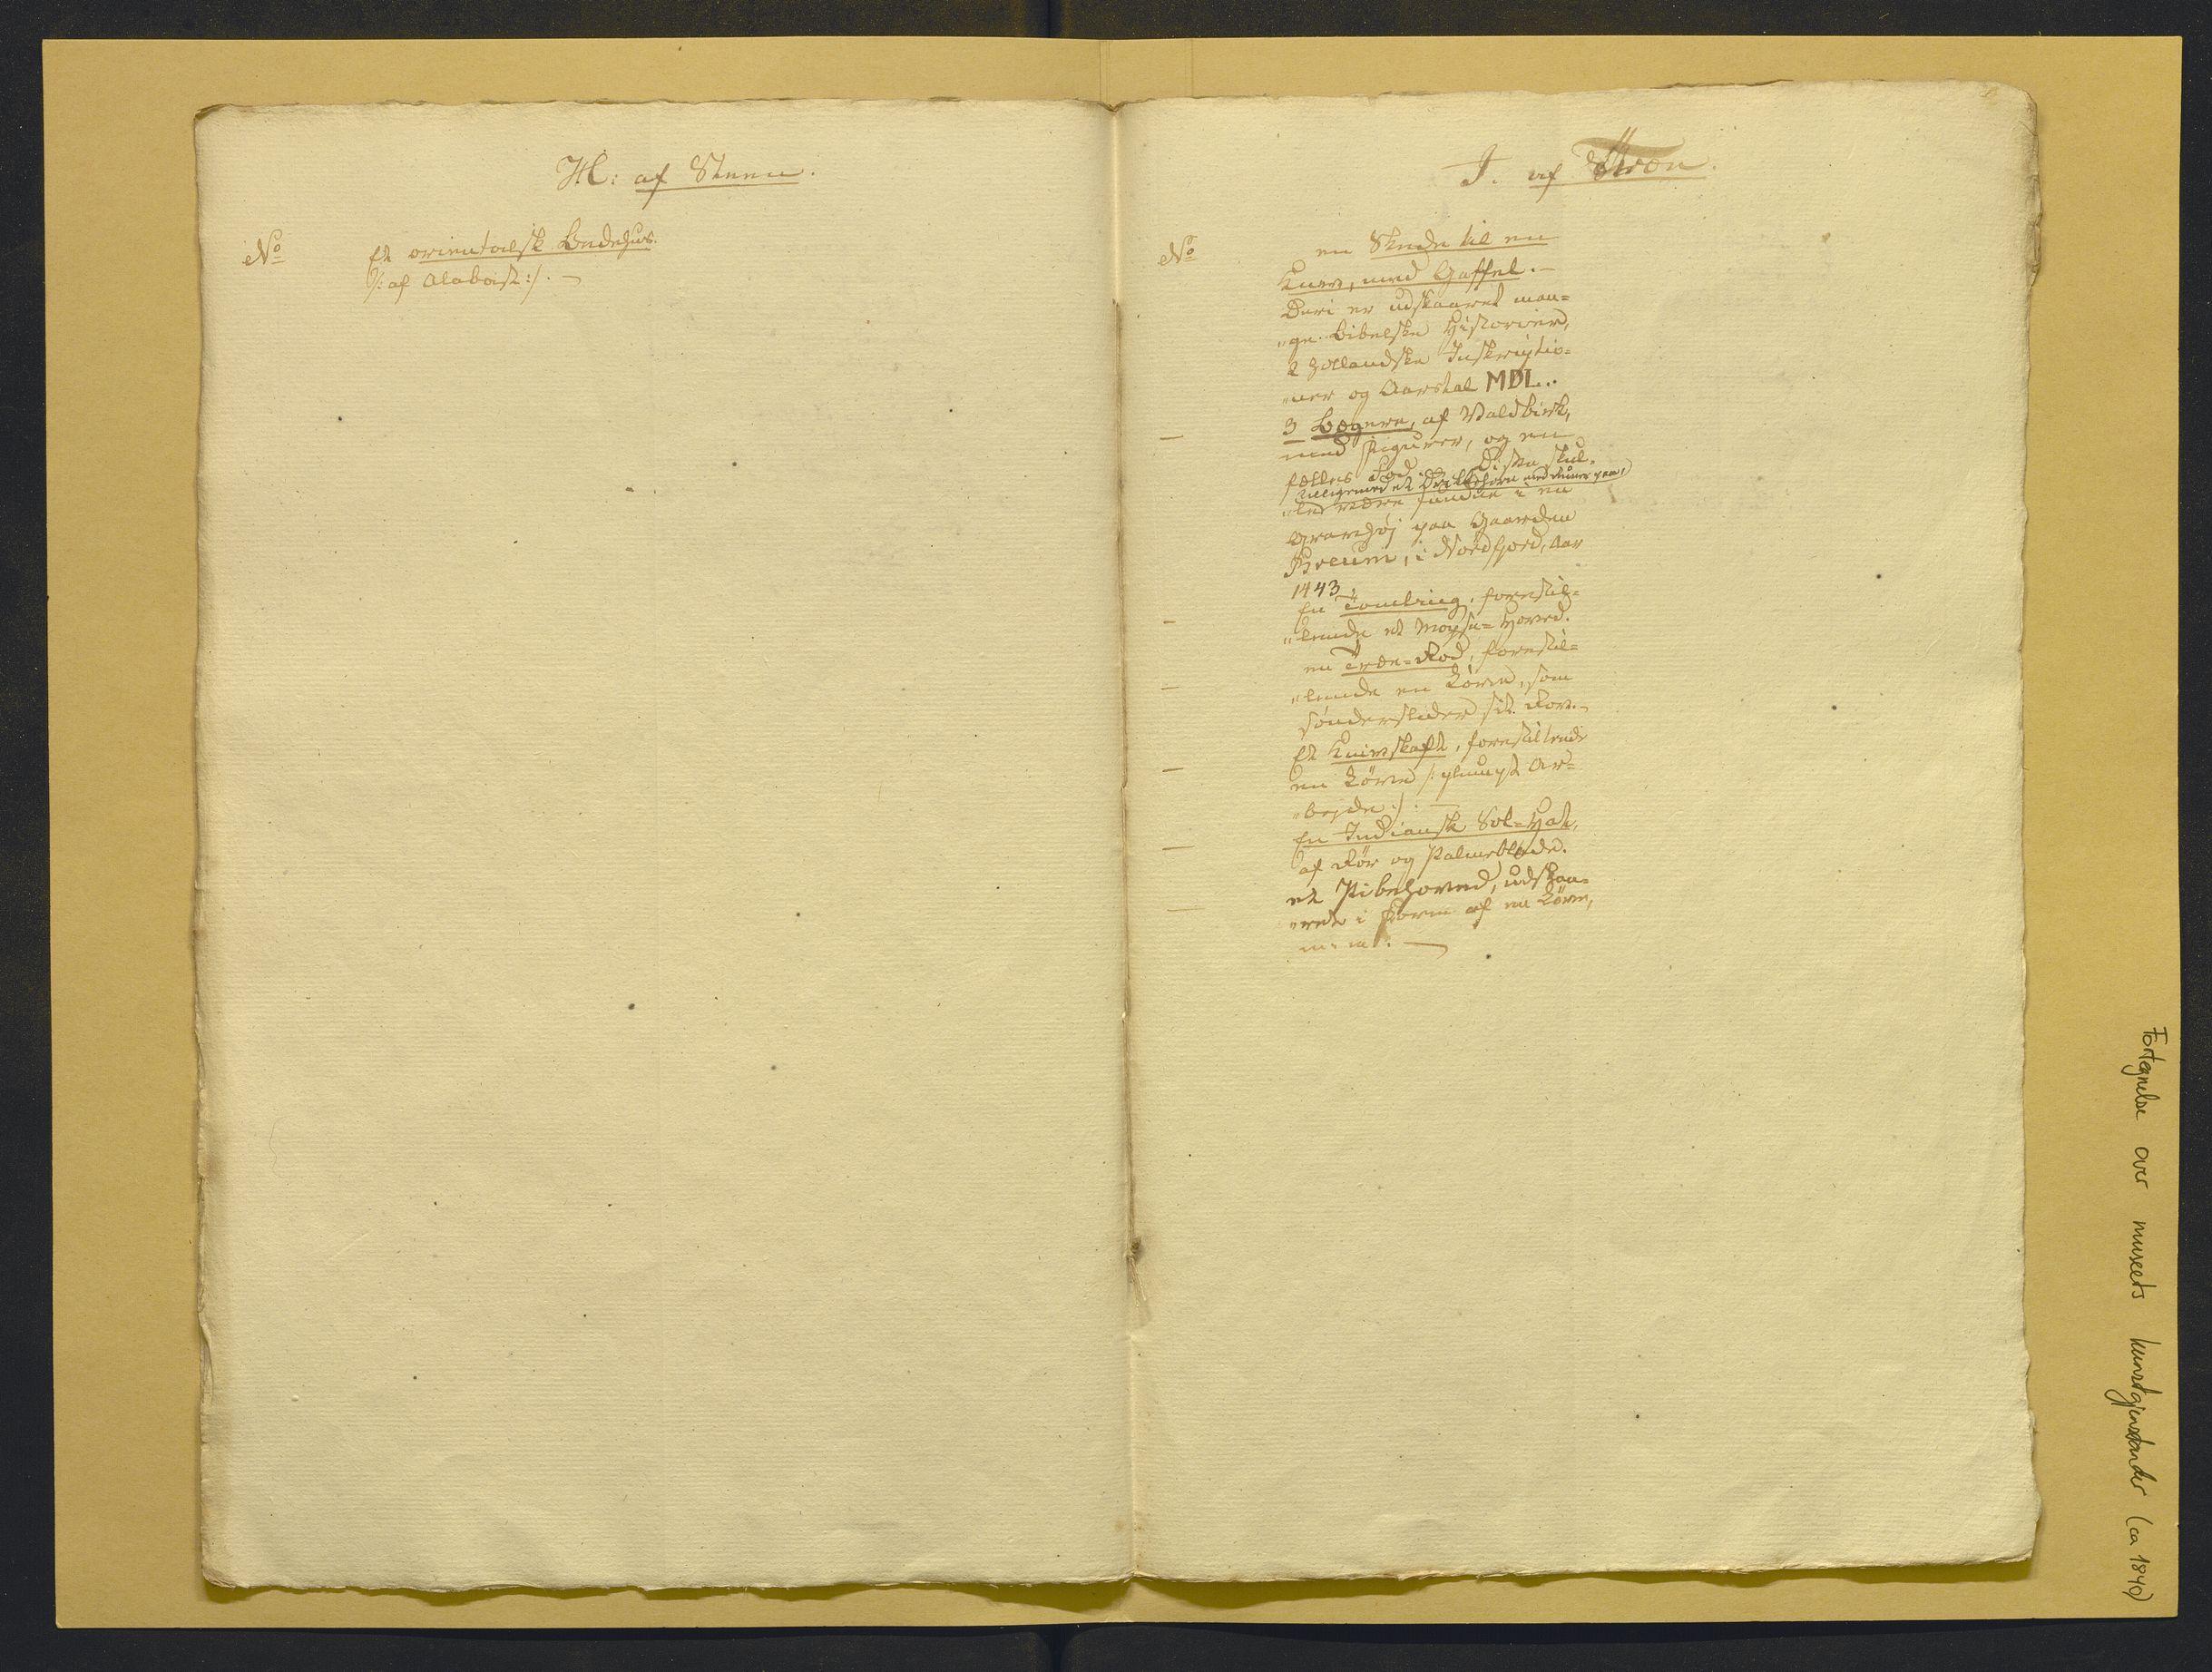 H: af Steen.
No
Et orientalsk Badehus.
/: af Alabast :/. —
I. af Træn.
No
en Skede til en
Kniv, med Gaffel. —
Deri er udskaaret man=
"ge Bibelske Historier,
2 Hollandske Inskriptio=
"ner og Aarstal MDL..
— 3 Bægere, af Valdbirk,
med Figurer, og en
fælles Fod. Disse skul=
tilligemed et Drikkehorn med Runer paa,
"le være fundne i en
Gravhøj paa Gaarden
Breum, i Nordfjord, Aar
1443.
— En Tombring, forestil=
"lende et Mopse=Hoved.
— en Træe=Rod, forestil=
"lende en Løve, som
sønderslider sit Rov. —
— Et Knivskaft, forestillende
en Løve /: plumpt Ar=
"bejde :/. —
— En Indiansk Sol=Hat,
af Rør og Palmeblade.
— et Pibehoved, udskaa=
"ret i Form af en Løve,
m: m: —
Fortegnelse over museets kunstgjenstander (ca 1840)